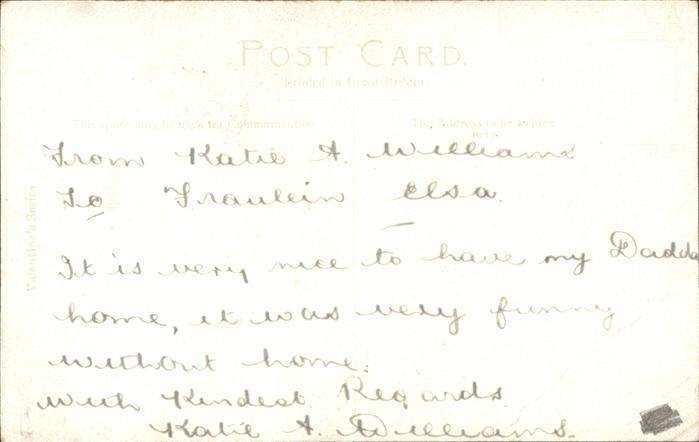 POST CARD.
Printed in Great Britain
This space may be used for Communication
The Address to be written here
Valentine's Series
From Katie A. Williams
To Fraulein Elsa.
It is very nice to have my Dadda
home, it was very funny
without home.
With Kindest Regards
Katie A. Williams.